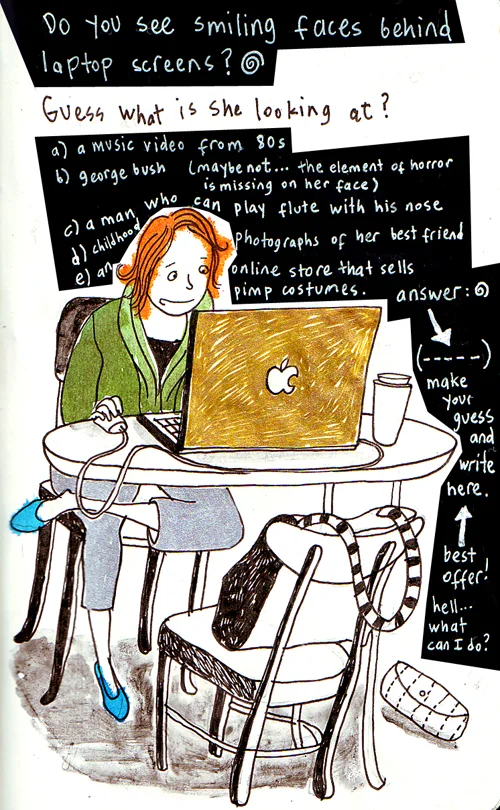 Do you see smiling faces behind
laptop screens?
Guess what is she looking at?
a) a music video from 80s
b) george bush (maybe not... the element of horror
is missing on her face)
c) a man who can play flute with his nose
d) childhood photographs of her best friend
e) an online store that sells
pimp costumes.
answer:
(-----)
make
your
guess
and
write
here.
best
offer!
hell...
what
can I do?